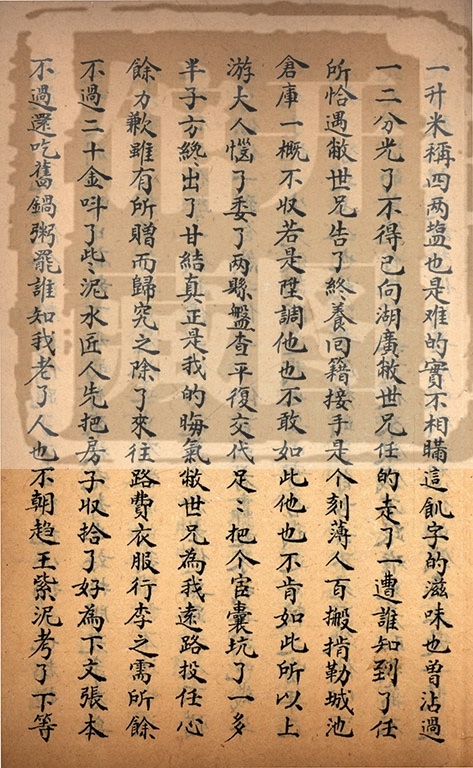 一升米稱四两塩也是难的實不相瞞這飢字的滋味也曽沾過
一二分光了不得已向湖廣敝世兄任的走了一遭誰知到了任
所恰遇敝世兄告了終養回籍接手是个刻薄人百搬掯勒城池
倉庫一概不收若是陞調他也不敢如此他也不肯如此所以上
游大人惱了委了两縣盤查平復交代足〻把个宦囊坑了一多
半子方纔出了甘結真正是我的晦氣敝世兄為我遠路投任心
餘力歉雖有所贈而歸究之除了來往路費衣服行李之需所餘
不過二十金呌了些泥水匠人先把房子収拾了好為下文張本
不過還吃舊鍋粥罷誰知我老了人也不朝趋王紫泥考了下等